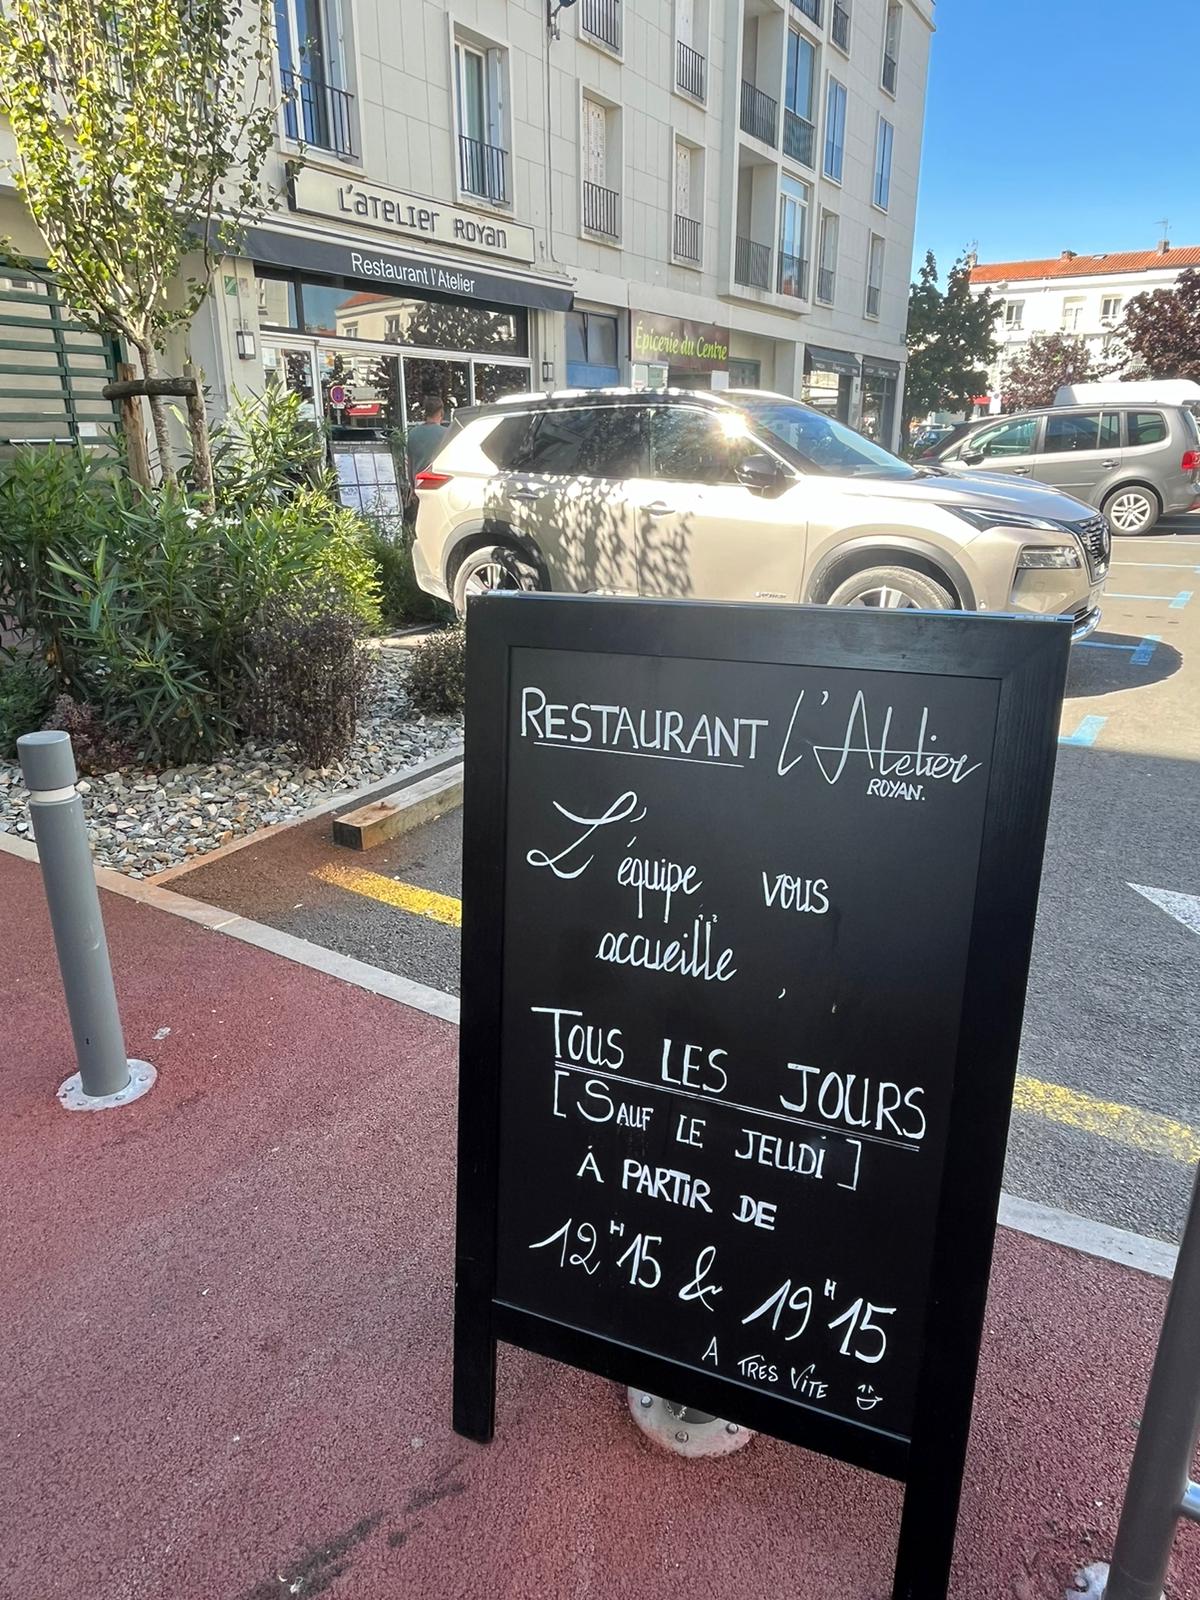 L'ATELIER ROYAN
Restaurant l'Atelier
Épicerie du Centre
RESTAURANT l'Atelier
ROYAN.
L'équipe vous
accueille
TOUS LES JOURS
[SAUF LE JEUDI]
À PARTIR DE
12H15 & 19H15
A TRÈS VITE